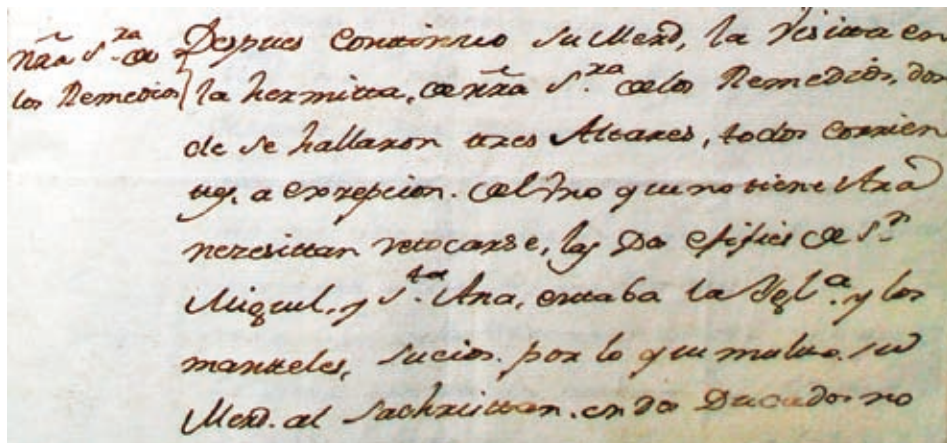 nr̃a S.ra de
los Remedios
Despues Conttinuo su Merd, la Visitta en
la hermitta, de nr̃a S.ra de los Remedios, don
de se hallaron tres Altares, todos corrien
tes, a exzepcion. del Vno que no tiene Ara
nezesittan retocarse, las Dos efijies de S.n
Miguel, y S.ta Ana, esttaba la Ygl.a y los
mantteles, sucios. por lo que multo. su
Merd. al Sachristtan. en dos Ducados no